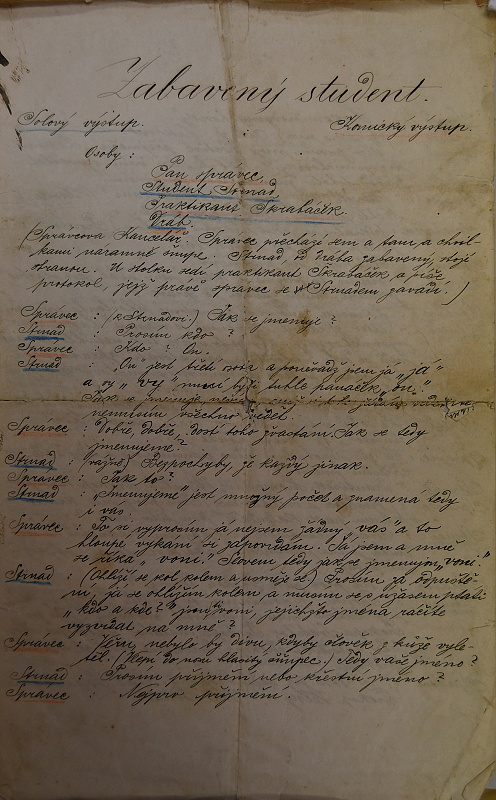 Zabavený student.
Solový výstup. Komický výstup.
Osoby:
Pan správec,
Student Strnad,
Praktikant Škrabáček.
Dráb
(Správcova kancelář. Správec přechází sem a tam a chvil-
kami náramně šňupe. Strnad, od drába zabavený, stojí
stranou. U stolku sedí praktikant Škrabáček a píše
protokol, jejž právě správec se Strnadem zavádí.)
Správec : (k Strnadovi.) Jak se jmenuje?
Strnad : Prosím, kdo?
Správec : Kdo? On.
Strnad : „On" jest třetí osoba a poněvadž jsem já „já"
a vy „vy" musí být tuhle panáček „on."
Jak se jmenuje,
nemusím všechno vědět.
Správec : Dobře, dobře, dosti toho žvastání. Jak se tedy
jmenujeme?
Strnad : (vážně) Bezpochyby, že každý jinak.
Správec : Jak to?
Strnad : „Jmenujeme" jest množný počet a znamená tedy
i vás.
Správec : To si vyprosím já nejsem žádný „vás" a to
hloupé vykání si zapovídám. Já jsem a mně
se říká „voni." Slovem tedy jak se jmenujou „voni."
Strnad : (Ohlíží se kol kolem a usměje se.) Prosím za odpuště-
ní, já se ohlížím kolem a musím se s úžasem ptáti
„kdo a kde?" jsou „voni", jejichžto jména ráčíte
vyzvídat na mně?
Správec : Věru, nebylo by divu, kdyby člověk z kůže vyle-
těl. (Plejn do nosu hlasitý šňupec.) Tedy vaše jméno?
Strnad : Prosím příjmení nebo křestní jméno?
Správec : Nejprv příjmení.